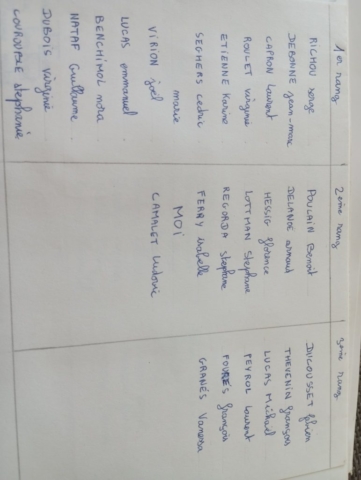 1er rang
RICHOU serge
DEBONNE jean-marc
CAPRON Laurent
ROULET virginie
ETIENNE Karine
SEGHERS cedric
marie
VIRION joel
LUCAS emmanuel
BENCHIMOL nora
NATAF Guillaume
DUBOIS virginie
COUROUBLE stephanie
2eme rang
POULAIN Benoit
DELANOË arnaud
HESSIG florence
LOTTMAN Stephane
REGORDA stephane
FERRY isabelle
MOI
CAMALET Ludovic
3eme rang
DUCOUSSET
THEVENIN françois
LUCAS Michael
PEYROL Laurent
FOURÉS françois
GRANÉS Vanessa